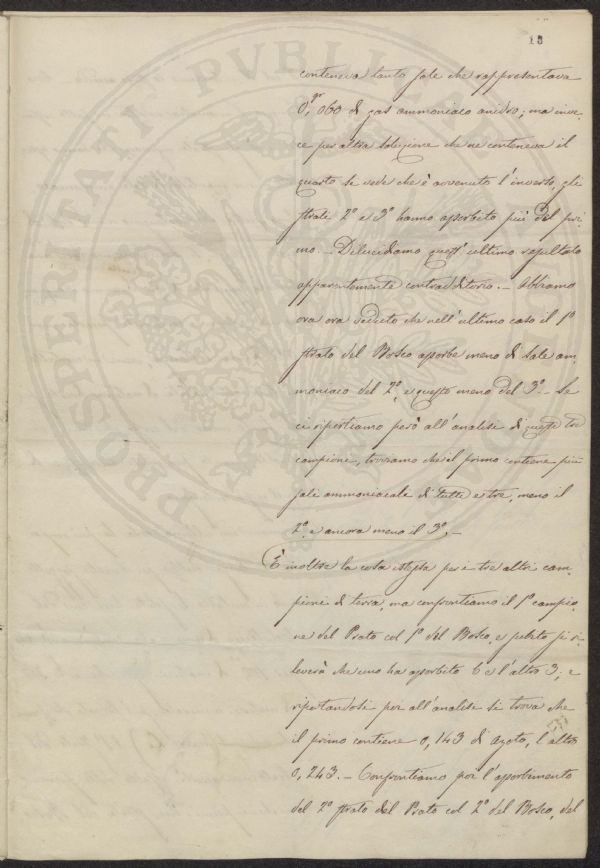 13
conteneva tanto sale che rappresentava
0,gr 060 di gas ammoniaco anidro; ma inve-
ce per altra soluzione che ne conteneva il
quarto si vede che è avvenuto l'inverso, gli
strati 2º e 3º hanno assorbito più del pri-
mo. — Dilucidiamo quest'ultimo risultato
apparentemente contradditorio. — Abbiamo
ora ora veduto che nell'ultimo caso il 1º
strato del Bosco assorbe meno di sale am-
moniaco del 2º, e questo meno del 3º. — Se
ci riportiamo però all'analisi di questi tre
campioni, troviamo che il primo contiene più
sali ammoniacale di tutti e tre, meno il
2º, e ancora meno il 3º. —
È inoltre la cosa istessa per i tre altri cam-
pioni di terra, ma confrontiamo il 1º campio-
ne del Prato col 1º del Bosco, e subito si ri-
leverà che uno ha assorbito 6 e l'altro 3; e
riportandosi poi all'analisi si trova che
il primo contiene 0,143 di azoto, l'altro
0,243. — Confrontiamo poi l'assorbimento
del 2º strato del Prato col 2º del Bosco, del
PROSPERITATI PVBLICAE